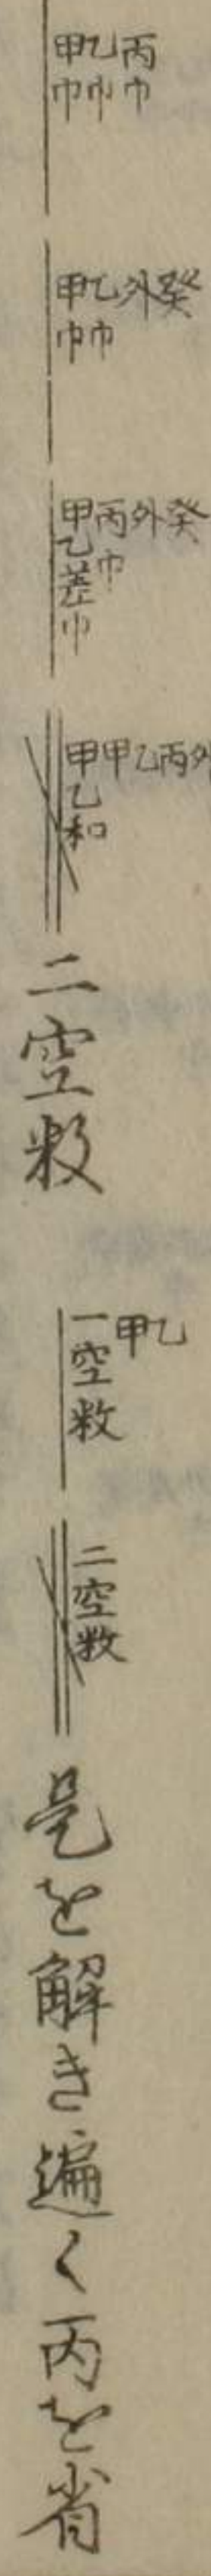 甲巾乙巾丙巾
甲巾乙巾外癸
甲乙差巾丙巾外癸
甲乙和甲乙丙外
二空数
一空数甲乙
二空数
是を解き遍く丙を省